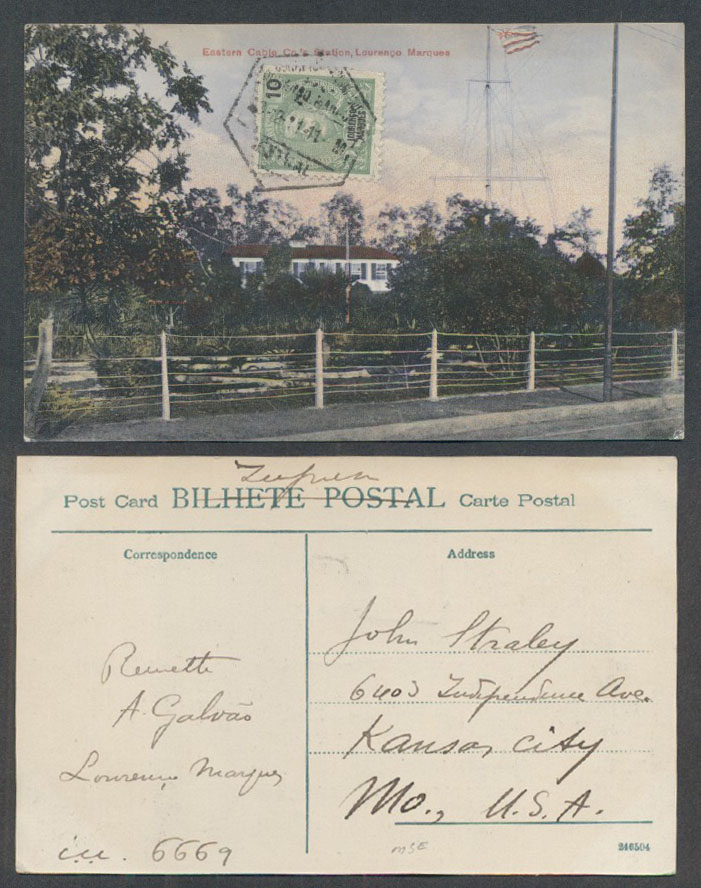 Eastern Cable Co.'s Station, Lourenço Marques
10
LOURENÇO MARQUES
CENTRAL
Post Card BILHETE POSTAL Carte Postal
Correspondence
Address
John Straley
6403 Independence Ave.
Kansas City
Mo., U.S.A.
Remette
A. Galvão
Lourenço Marques
6669
MSE
246504